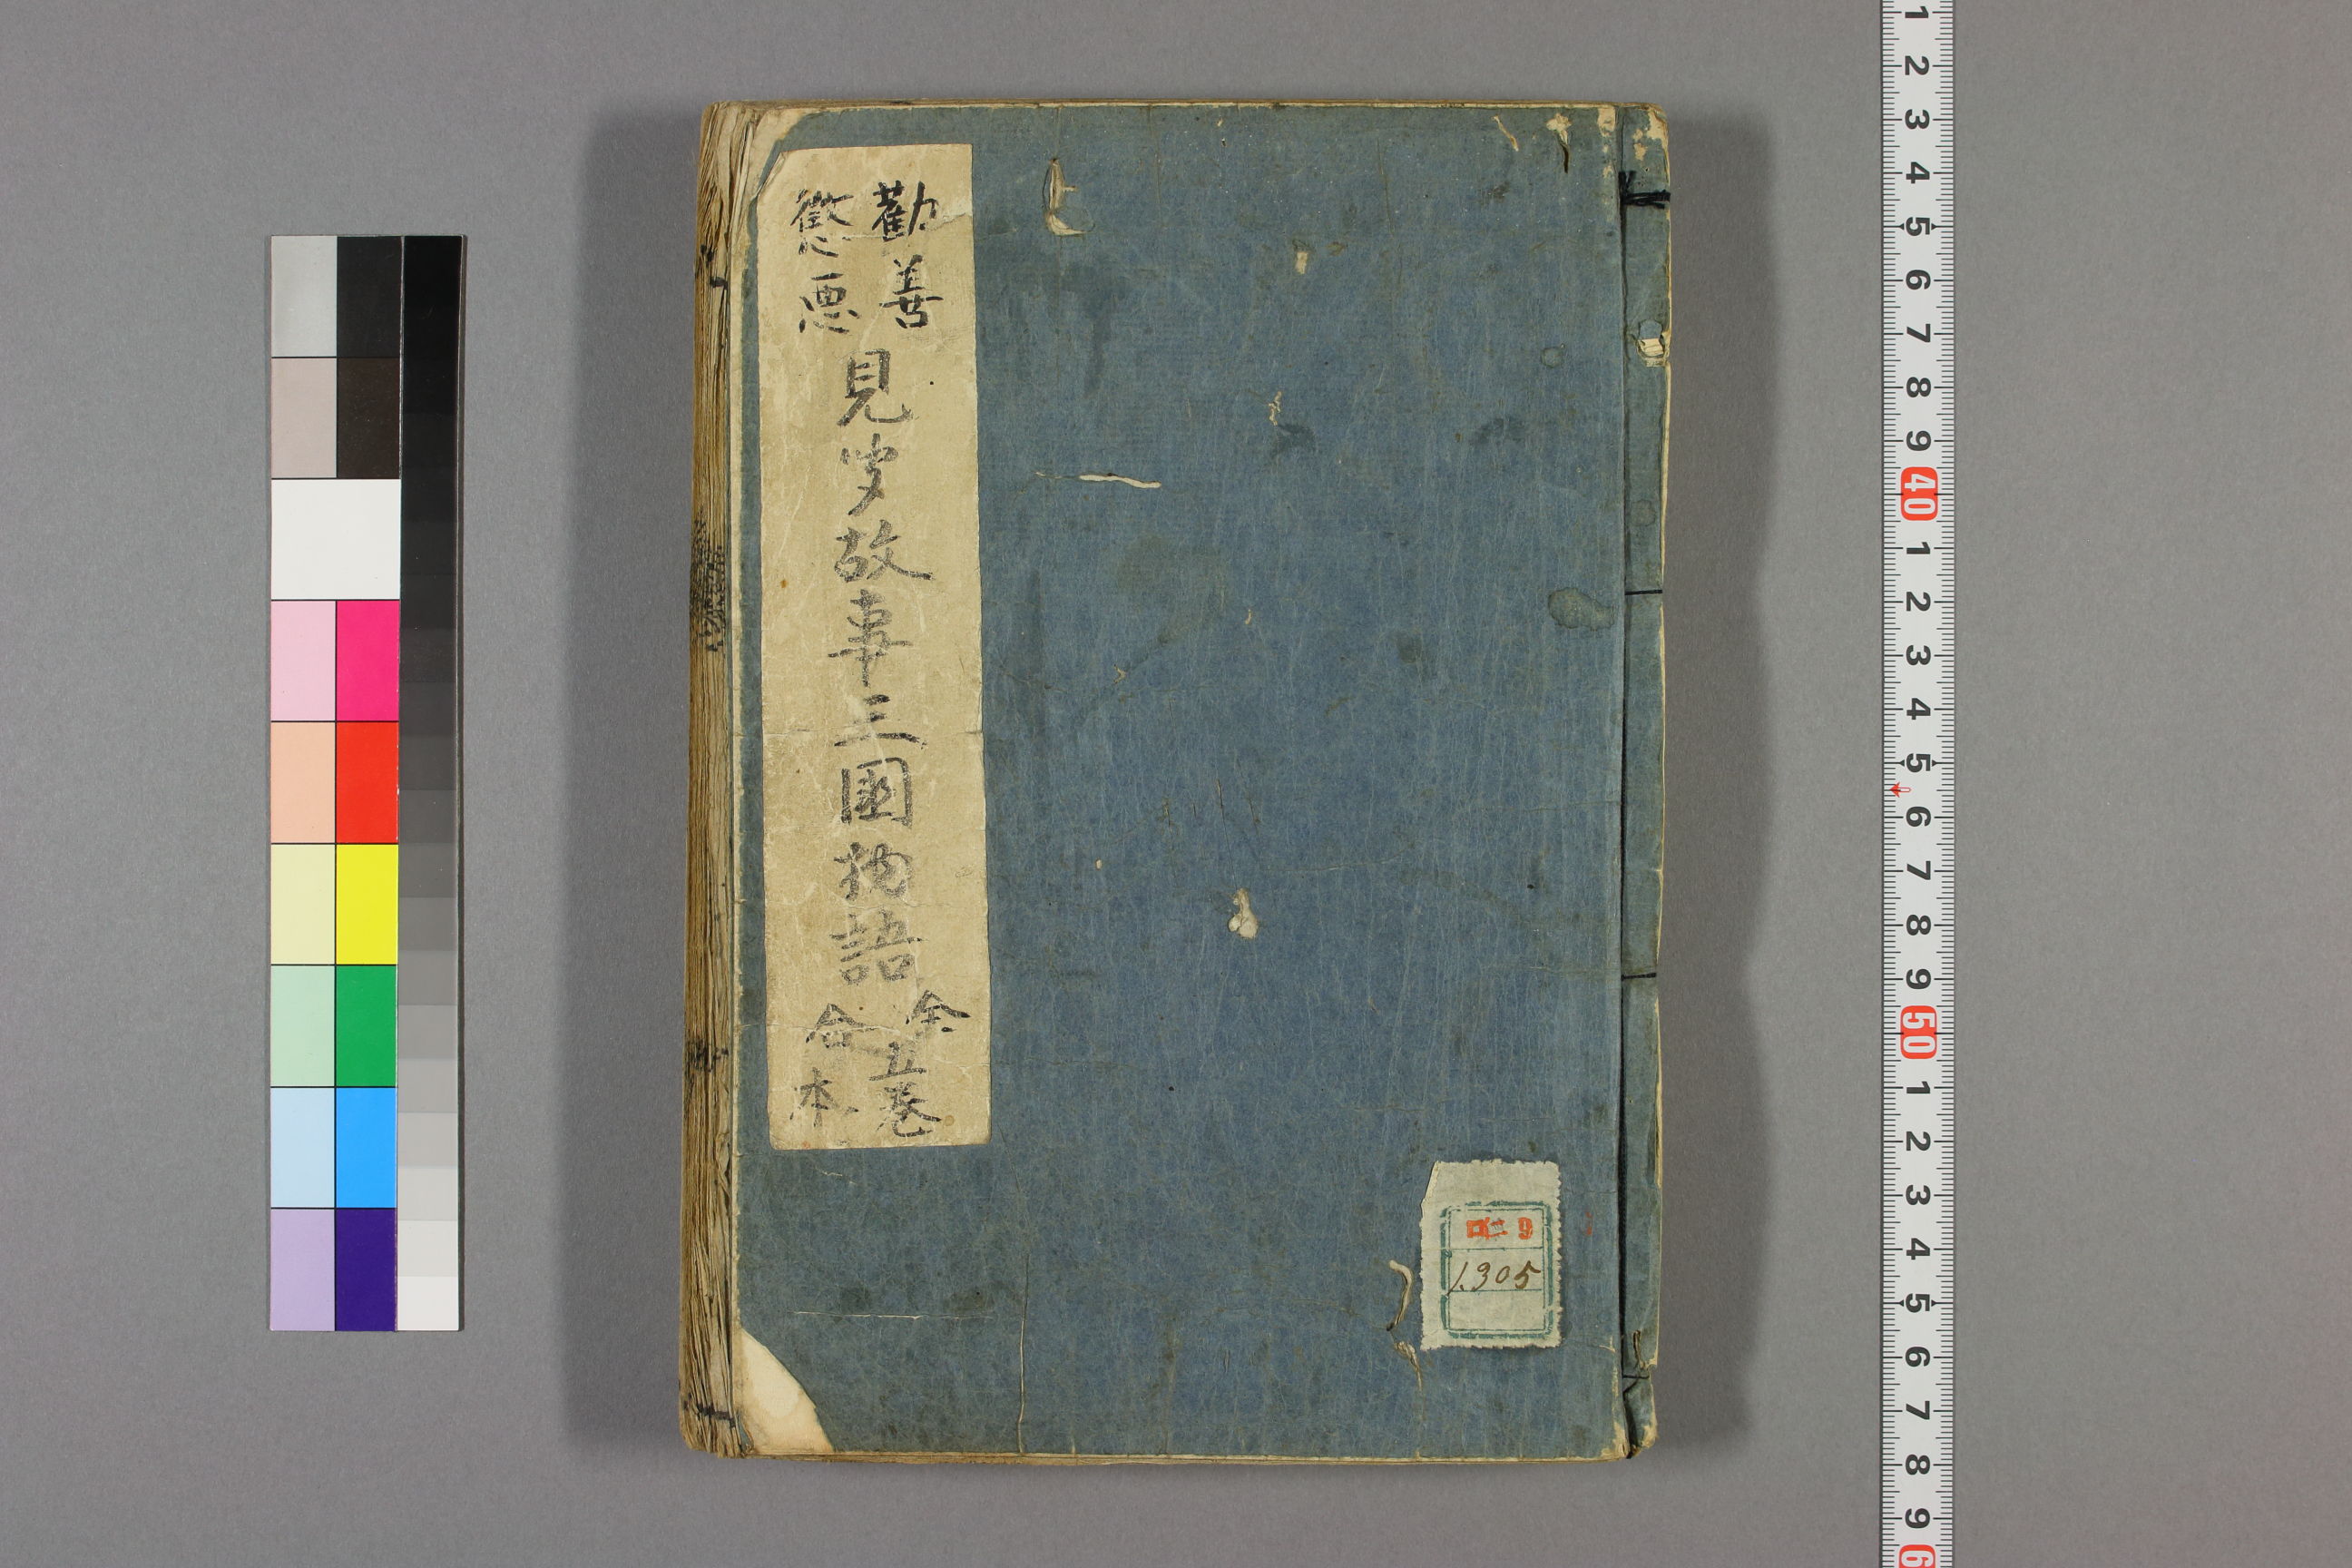 勸善
懲悪
見
故事三國物語
全五巻
合本
1305
1
2
3
4
5
6
7
8
9
40
1
2
3
4
5
6
7
8
9
50
1
2
3
4
5
6
7
8
9
6